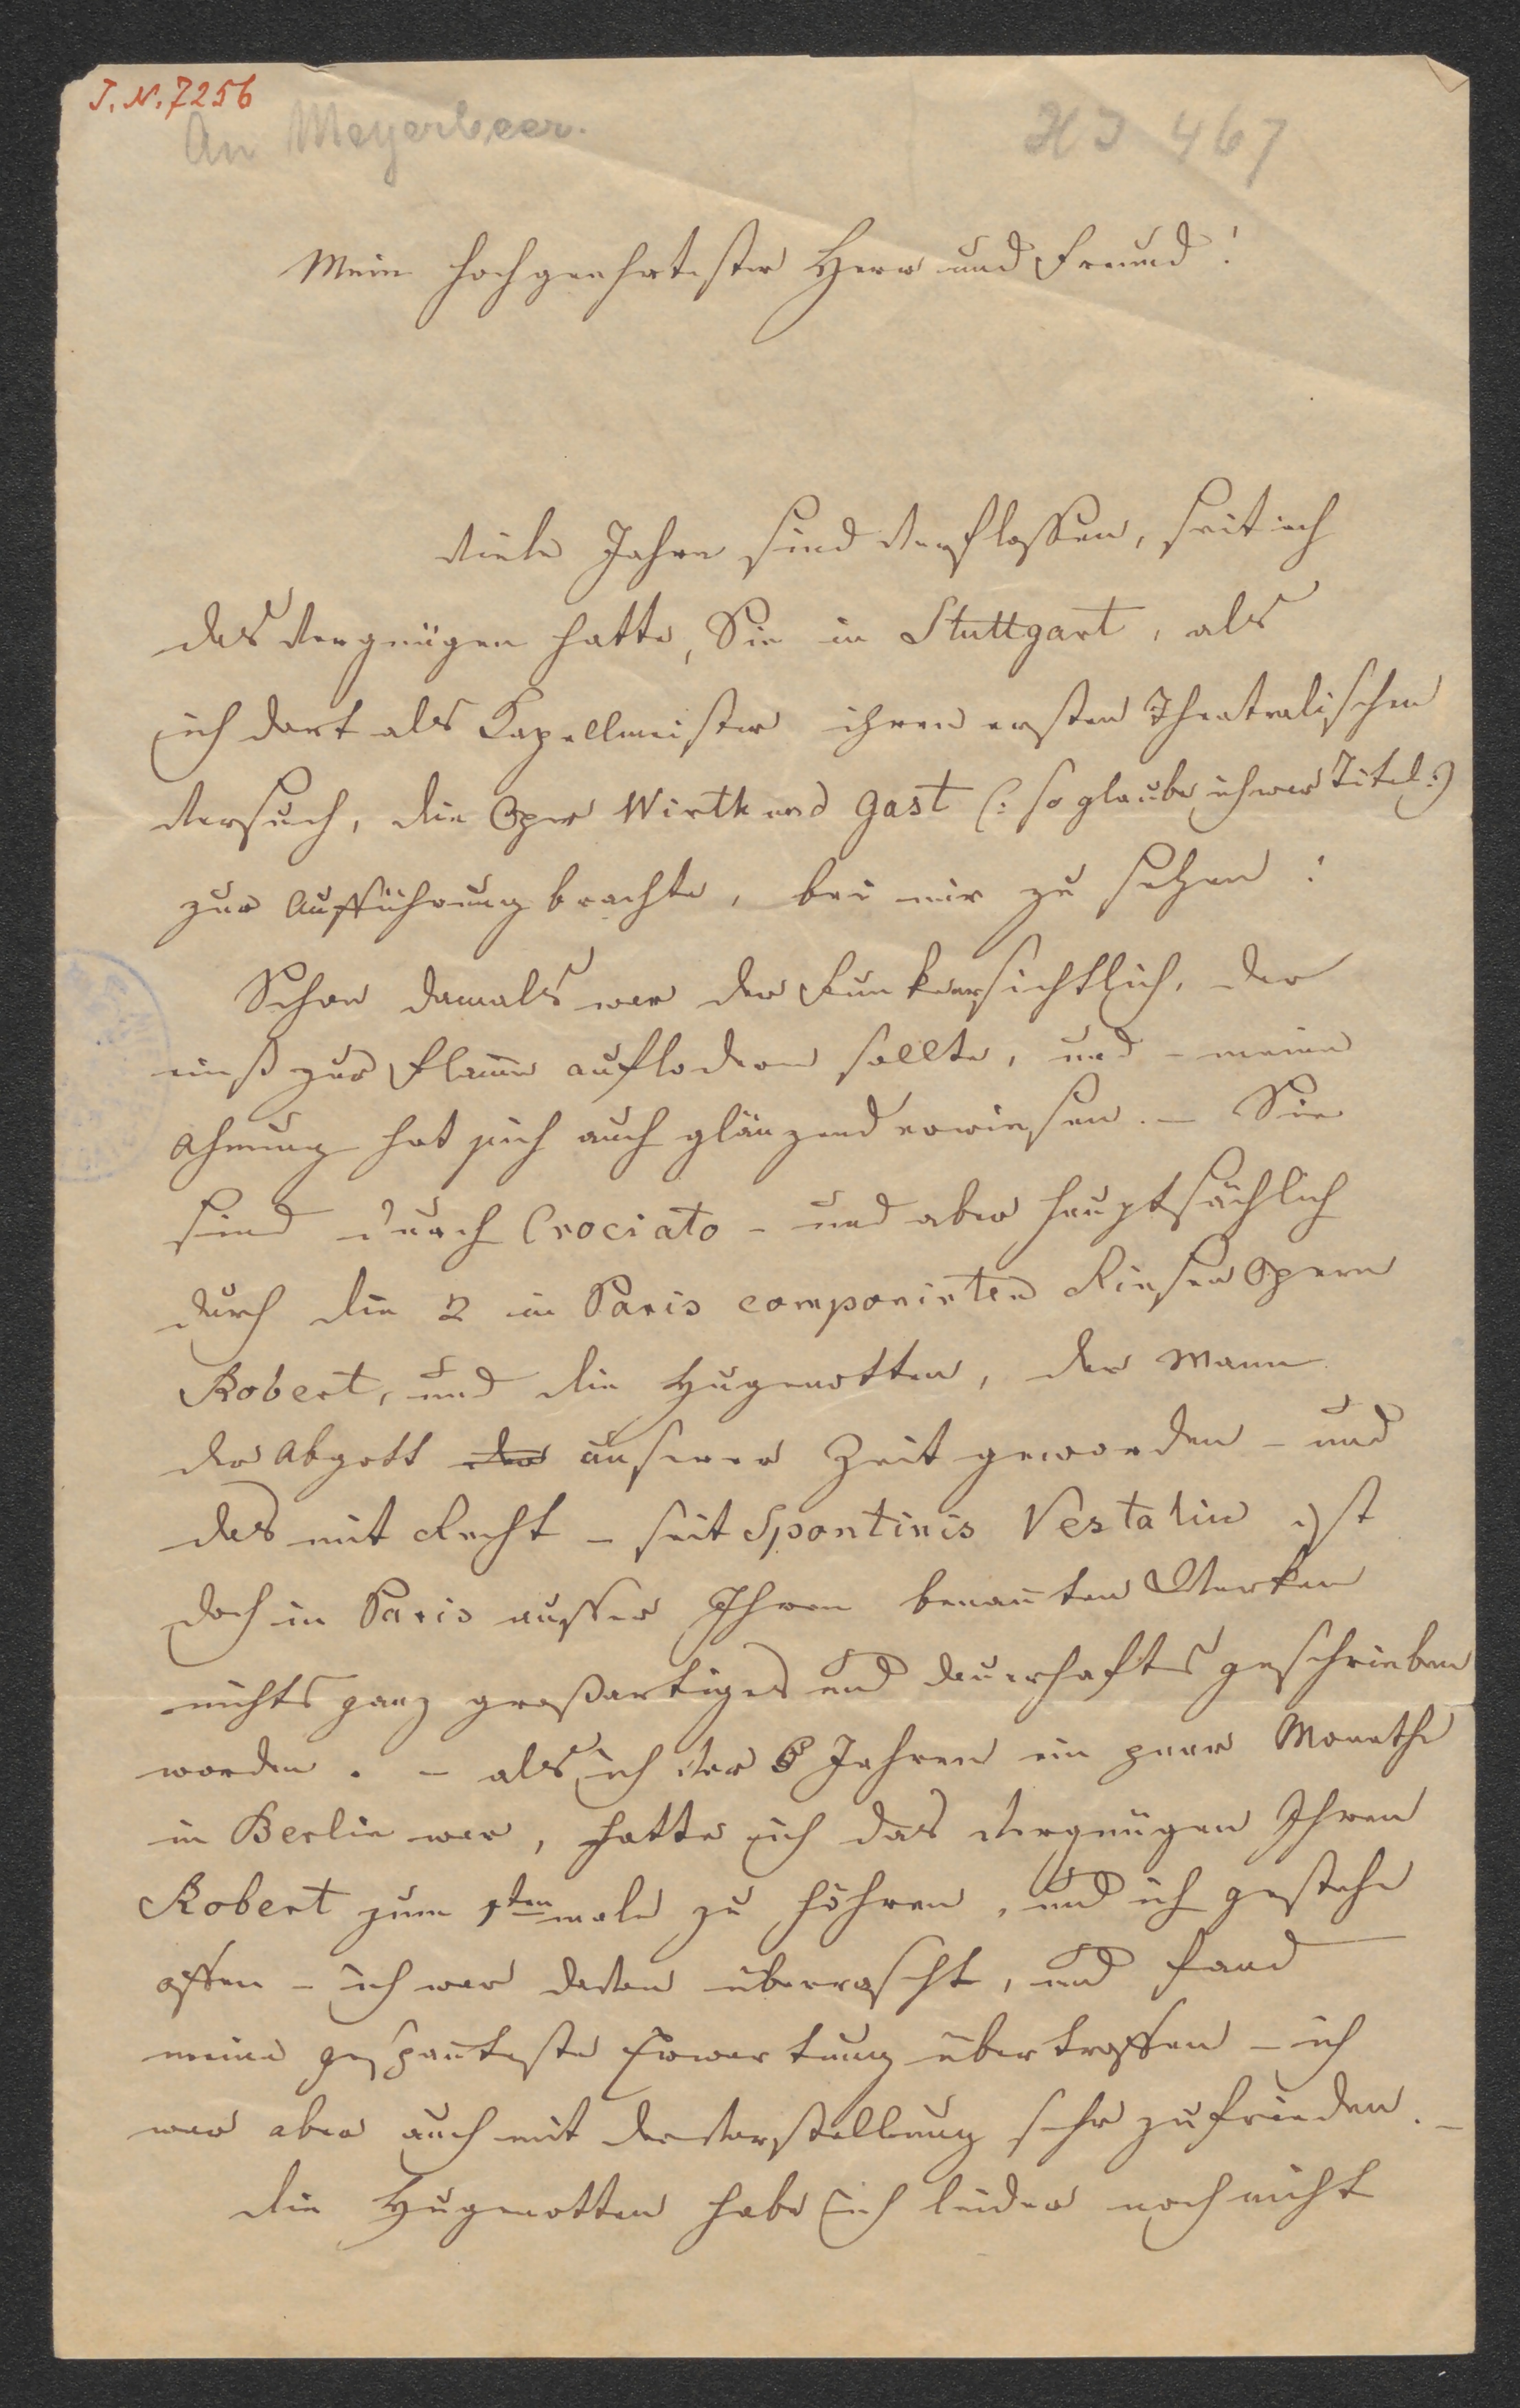 J. N. 7256
An Meyerbeer.
HJ 467
Mein hochgeehrtester Herr und Freund!
Viele Jahre sind verflossen, seit ich
das Vergnügen hatte, Sie in Stuttgart, als
ich dort als Kapellmeister ihren ersten Theatralischen
Versuch, die Oper Wirth und Gast (: so glaube ich war Titel :)
zur Aufführung brachte, bei mir zu sehen!
Schon damals war der Funke ersichtlich, der
einst zur Flame auflodern sollte, und – meine
Ahnung hat sich auch glänzend erwiesen. – Sie
sind durch Crociato – und aber hauptsächlich
durch die 2 in Paris componirten Riesen Opern
Robert, und die Hugenotten, der Mann
der Abgott der unserer Zeit geworden – und
das mit Recht – seit Spontinis Vestalin ist
doch in Paris ausser Ihren benanten Werken
nichts ganz großartiges und dauerhaftes geschrieben
worden. – als ich vor 6 Jahren ein paar Monathe
in Berlin war, hatte ich das Vergnügen Ihren
Robert zum 1ten male zu höhren, und ich gestehe
offen – ich war davon überrascht, und fand
meine gespanteste Erwartung übertroffen – ich
war aber auch mit der Vorstellung sehr zufrieden. –
Die Hugenotten habe ich leider noch nicht